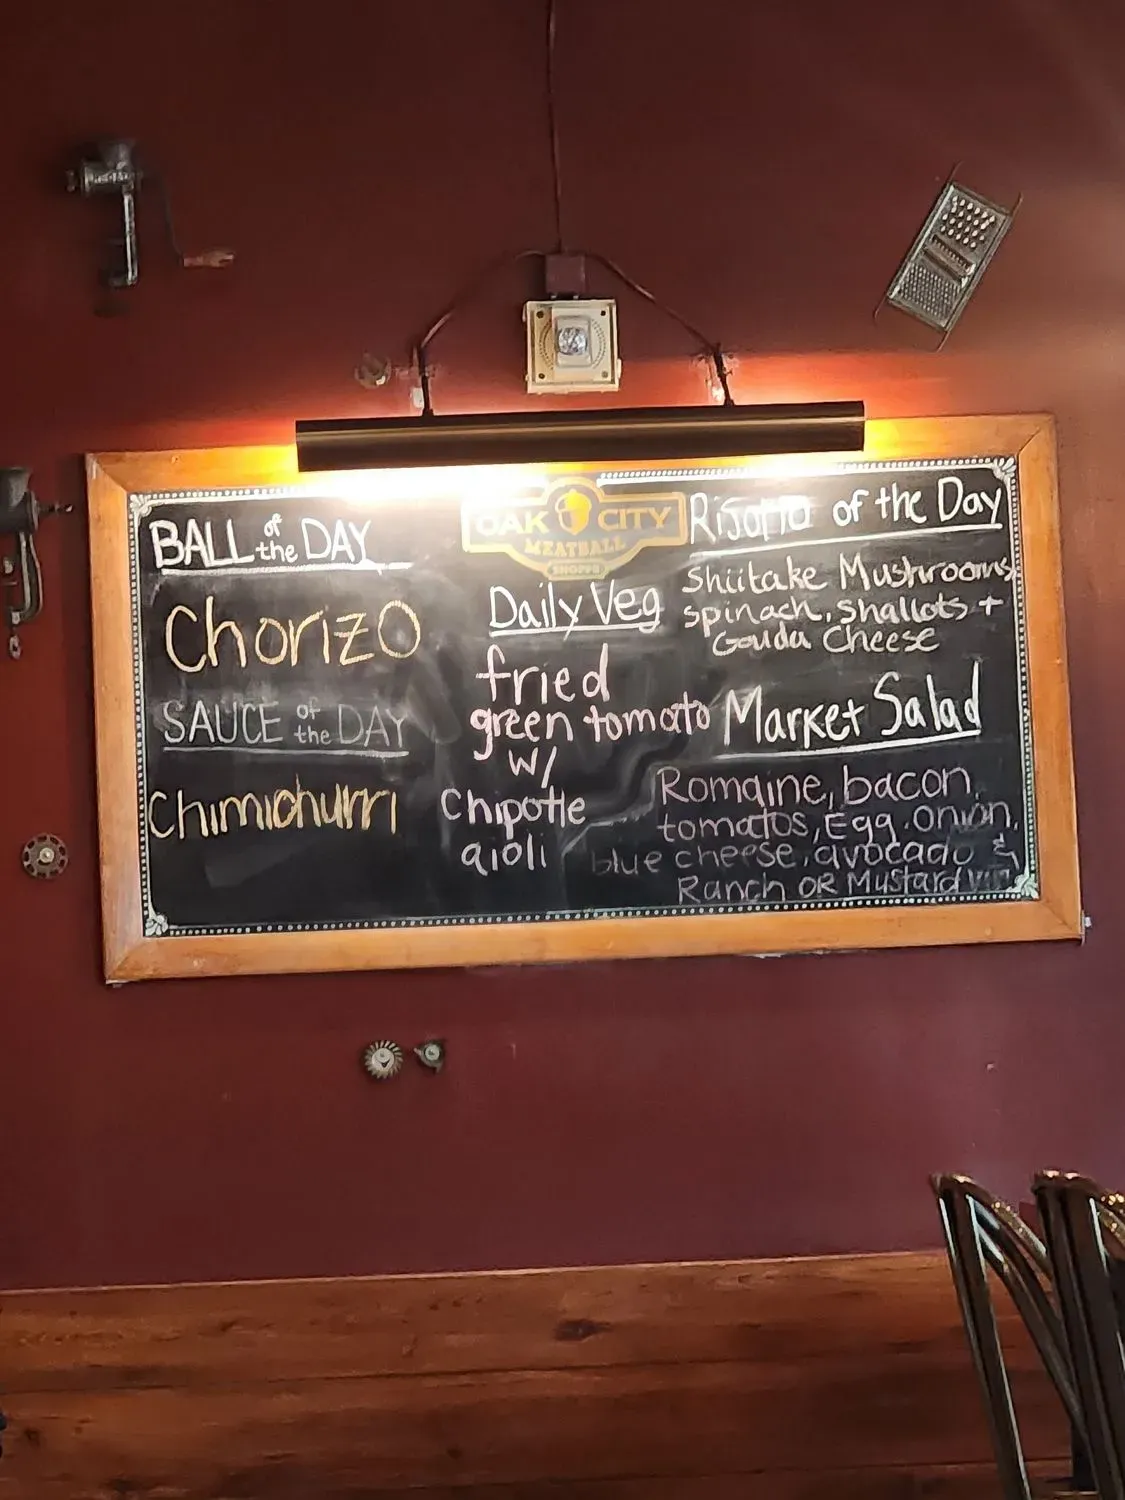 BALL of the DAY
Chorizo
SAUCE of the DAY
Chimichurri
OAK CITY
MEATBALL
SHOPPE
Daily Veg
fried
green tomato
w/
Chipotle
aioli
Risotto of the Day
Shiitake Mushrooms
spinach, shallots +
Gouda Cheese
Market Salad
Romaine, bacon,
tomatos, Egg, onion,
blue cheese, avocado &
Ranch OR Mustard